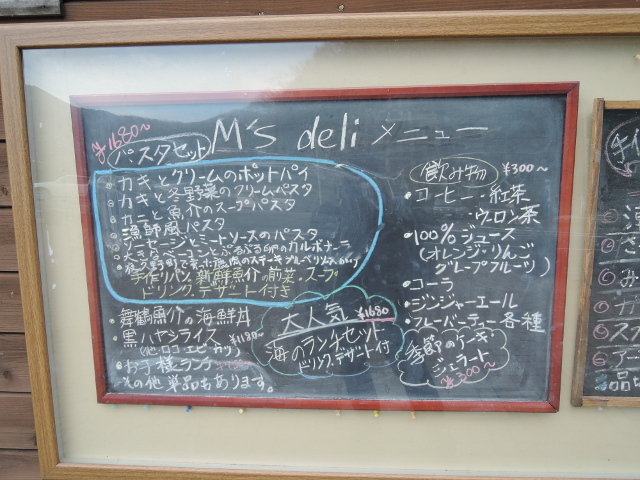 M's deli メニュー
¥1680〜
パスタセット
・カキとクリームのポットパイ
・カキと冬野菜のクリームパスタ
・カニと魚介のスープパスタ
・漁師風パスタ
・ソーセージとミートソースのパスタ
・大きなベーコンと ぷるぷる卵のカルボナーニ
手作りパン、新鮮魚介の前菜、スープ
ドリンク、デザート付き
・舞鶴魚介の海鮮丼
・黒ハヤシライス ¥1180〜
・お子様ランチ
その他 単品もあります。
大人気 ¥1680
海のランチセット
ドリンク、デザート付
飲み物 ¥300〜
・コーヒー・紅茶
・ウーロン茶
・100%ジュース
(オレンジ・りんご
グレープフルーツ)
・コーラ
・ジンジャーエール
・フレーバーティー各種
季節のケーキ
ジェラート
¥300〜
手作